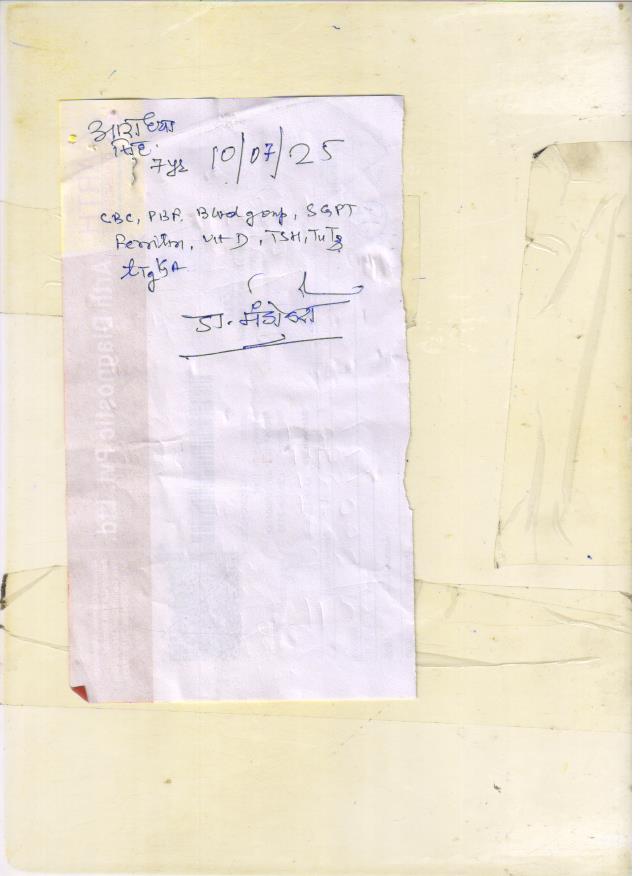 आराध्या
सिंह
7 yr
10/07/25
CBC, PBF, Blood group, SGPT
Ferritin, Vit D, TSH, T4 T3
tTg IgA
डा.
Diagnostic Pvt. Ltd